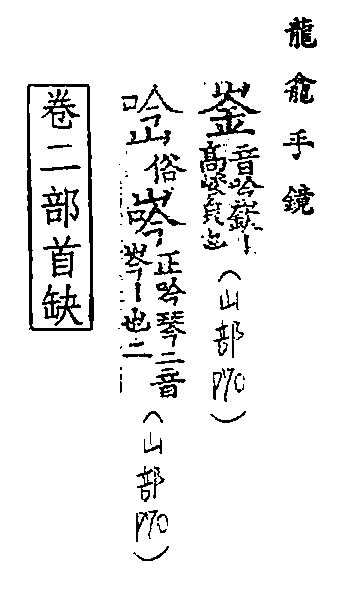 龍龕手鏡
崟音吟嶔丨高峻皃也(山部P70)
俗㟢正吟琴二音岑丨也二(山部P70)
卷二部首缺